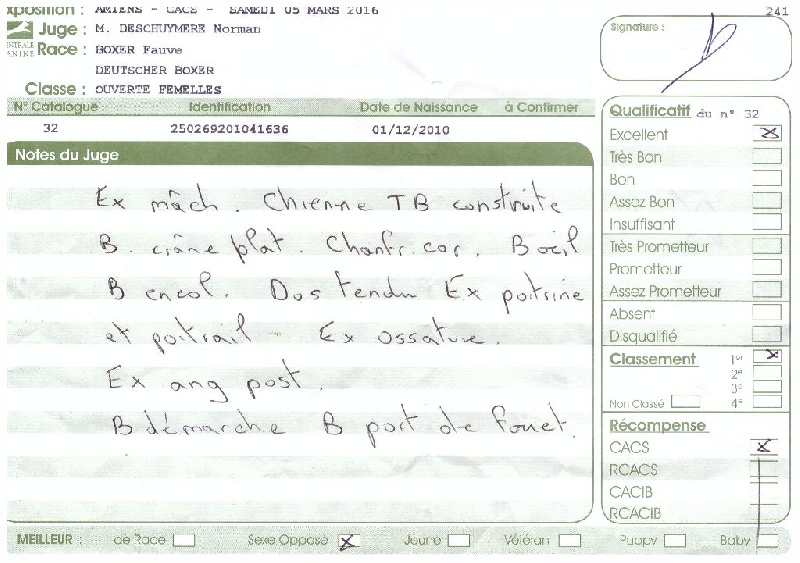 xposition : AMIENS - CACS - SAMEDI 05 MARS 2016
241
Juge : M. DESCHUYMERE Norman
Signature :
Race : BOXER Fauve
DEUTSCHER BOXER
Classe : OUVERTE FEMELLES
N° Catalogue Identification Date de Naissance à Confirmer
32 250269201041636 01/12/2010
Qualificatif du n° 32
Excellent
Très Bon
Bon
Assez Bon
Insuffisant
Très Prometteur
Prometteur
Assez Prometteur
Absent
Disqualifié
Classement 1er
2e
3e
Non Classé 4e
Récompense
CACS
RCACS
CACIB
RCACIB
Notes du Juge
Ex mâch. Chienne TB construite
B. crâne plat. Chanfr. cor. B œil
B encol. Dos tendu Ex poitrine
et poitrail - Ex ossature.
Ex ang post.
B démarche B port de fouet.
MEILLEUR : de Race Sexe Opposé Jeune Vétéran Puppy Baby